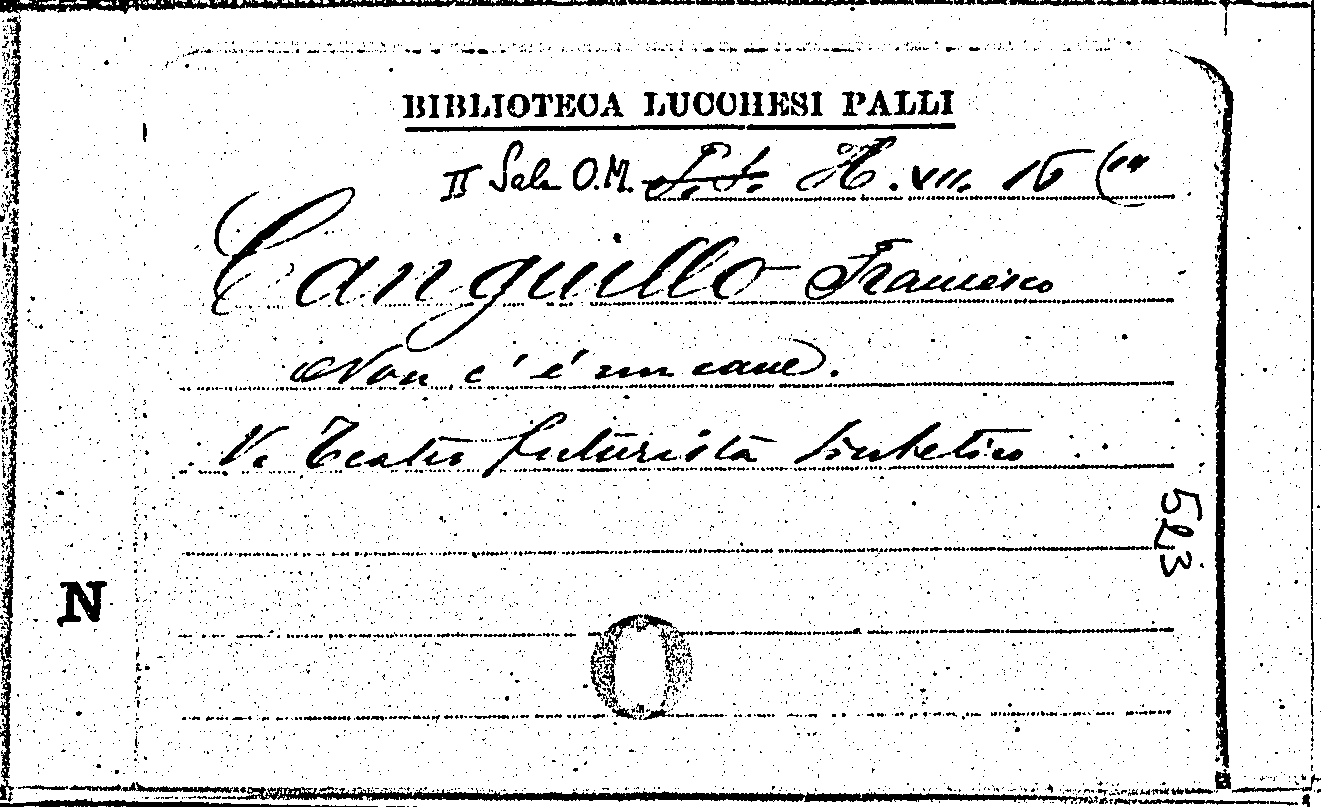 BIBLIOTECA LUCCHESI PALLI
II Sala O.M. H. VII. 16 (
Canguillo Francesco
Non c'é un cane.
V. Teatro futurista Sintetico
523
N